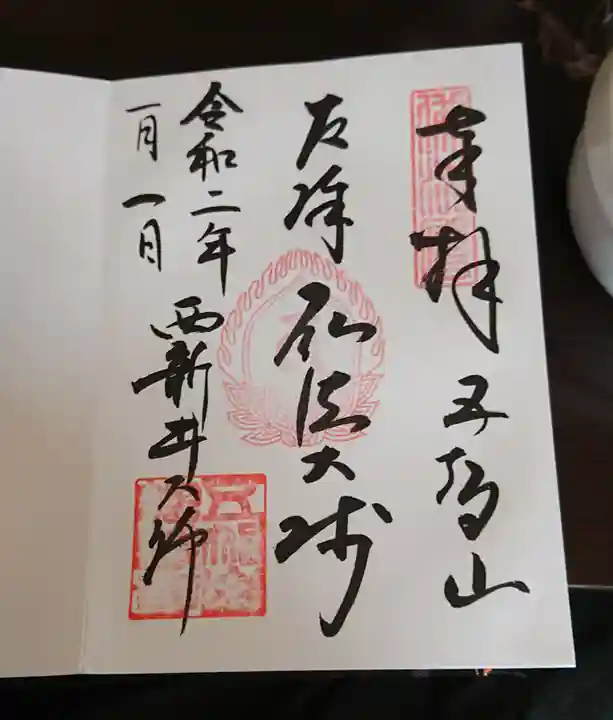 奉拝 五智山
厄除 弘法大師
令和二年
一月一日
西新井大師